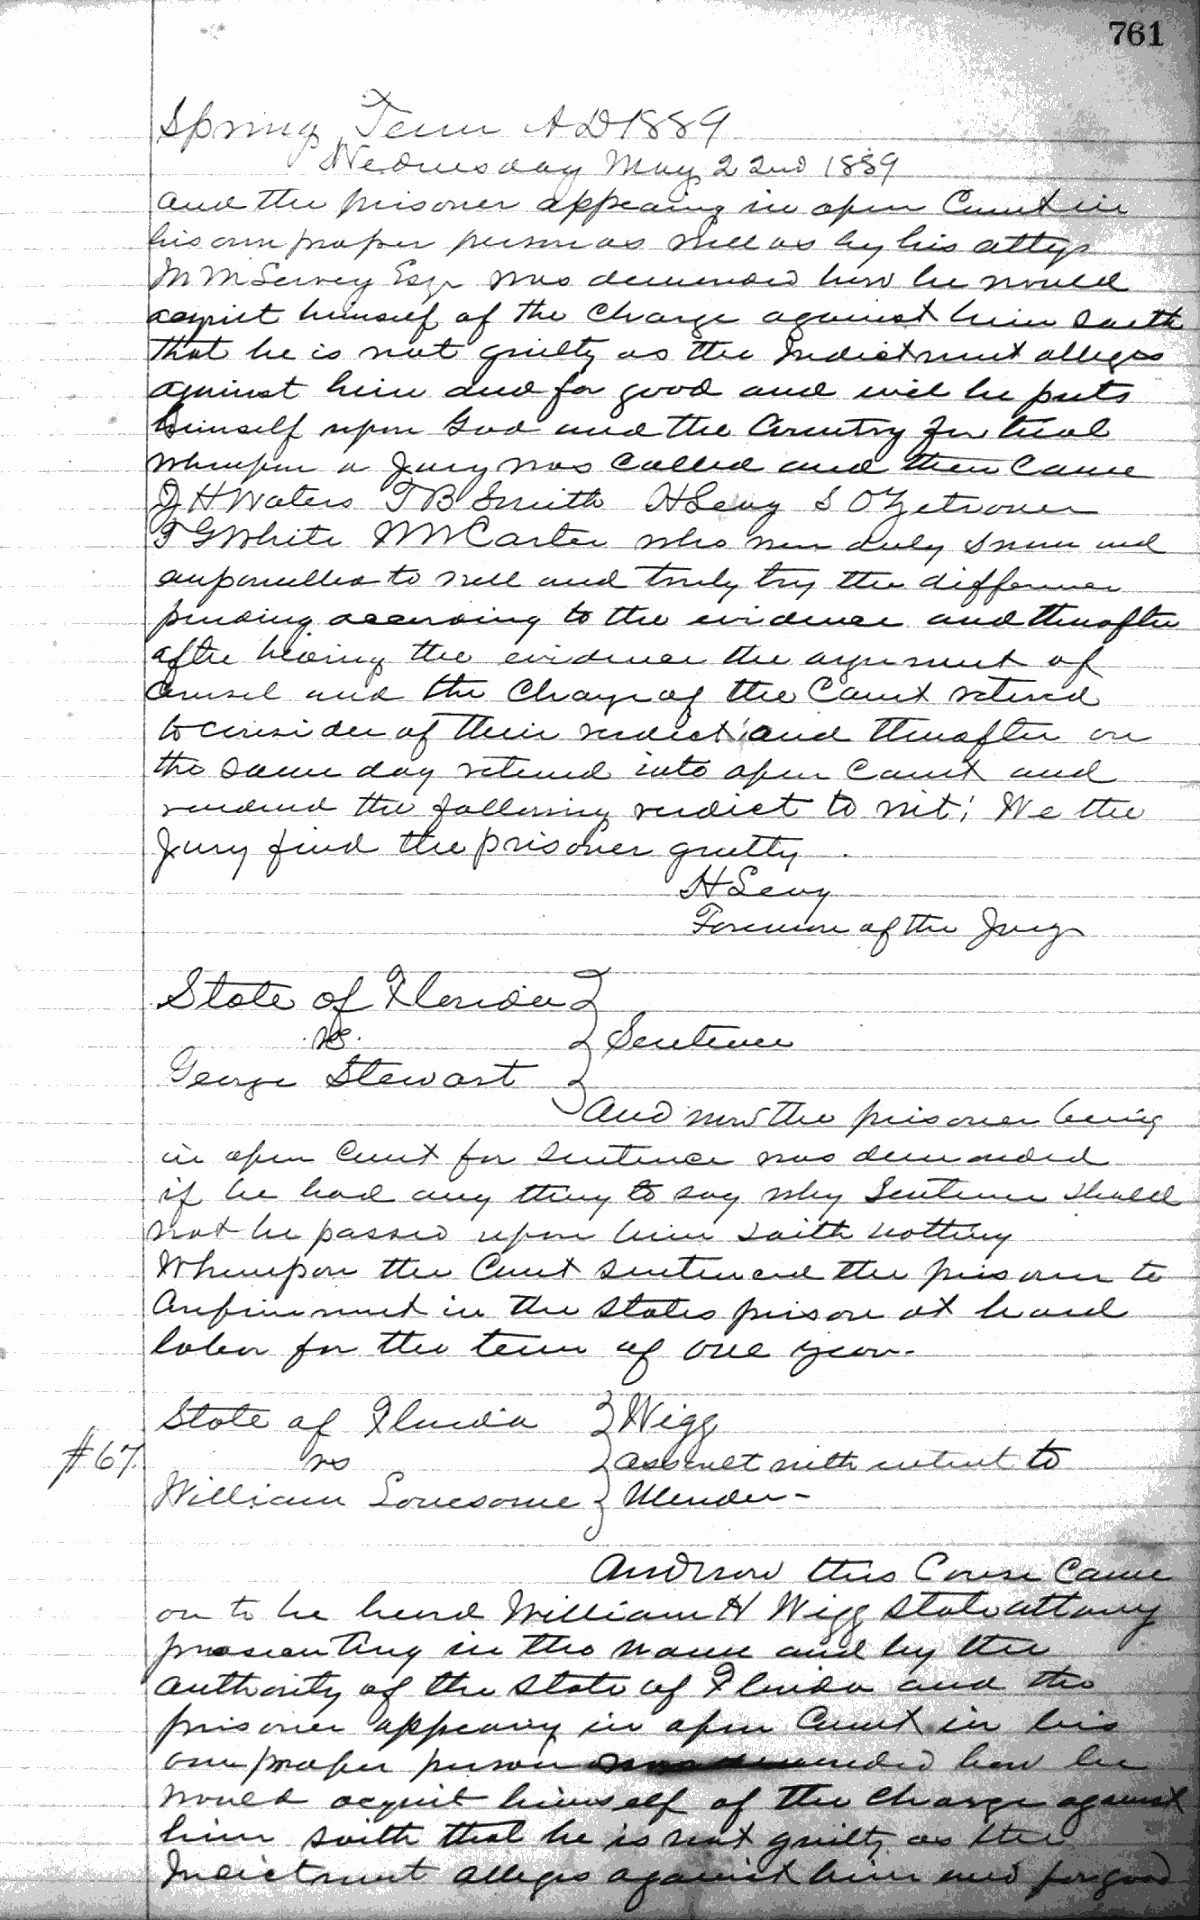 761
Spring Term AD 1889
Wednesday May 22nd 1889
and the prisoner appearing in open Court in
his own proper person as well as by his attys
Esqr was demanded how he would
acquit himself of the charge against him saith
that he is not guilty as the Indictment alleges
against him and for good and evil he puts
himself upon God and the Country for trial
whereupon a Jury was called and then came
J H Waters T B Smith H Levy S O Zetrouer
T G White W W Carter who were duly sworn and
empanelled to well and truly try the difference
pending according to the evidence and thereafter
after hearing the evidence the argument of
Counsel and the Charge of the Court retired
to consider of their verdict and thereafter on
the same day retured into open Court and
rendered the following verdict to wit; We the
Jury find the prisoner guilty.
H Levy
Foreman of the Jury
State of Florida
vs. Sentence
George Stewart
And now the prisoner being
in open Court for sentence was demanded
if he had any thing to say why Sentence should
not be passed upon him saith nothing
Whereupon the Court sentenced the prisoner to
Confinement in the States prison at hard
labor for the term of one year.
State of Florida Wigg
#67 vs assault with intent to
William Lonesome Murder -
And now this Cause Came
on to be heard William H Wigg State attorny
prosecuting in the name and by the
authority of the State of Florida and the
prisoner appearing in open Court in his
own proper person was demanded how he
would acquit himself of the charge against
him saith that he is not guilty as the
Indictment alleges against him and for good